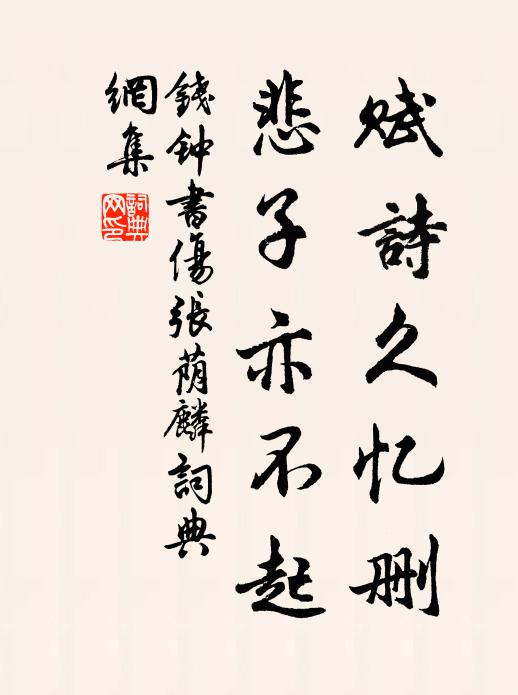 赋詩久忆删
悲子亦不起
錢钟書傷張荫麟詞典
網集
詞典
网印